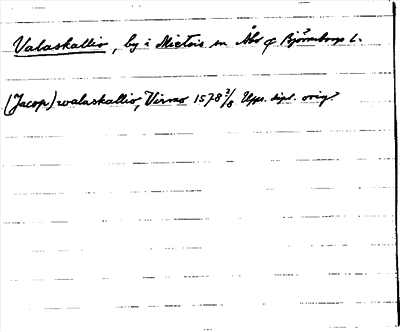 Valaskallio, by i Mietois sn Åbo o Björneborgs l.
(Jacop) walaskallio, Virmo 1578 3/8 Upps. dipl. orig.